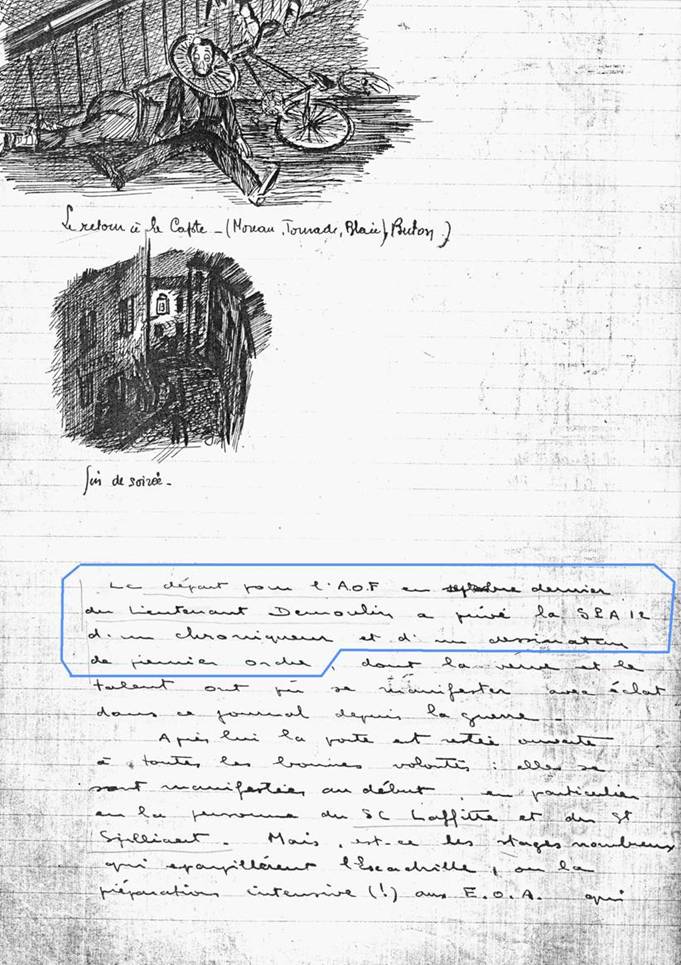 Le retour à la Cafote - (Moreau, Tournade, Blaie), Buton)
fin de soirée -
Le départ pour l'A.O.F en septembre dernier
du Lieutenant Demoulin a privé la SPA 12
d'un chroniqueur et d'un dessinateur
de premier ordre, dont la verve et le
talent ont pu se manifester avec éclat
dans ce journal depuis la guerre -
Après lui la porte est restée ouverte
à toutes les bonnes volontés : elles se
sont manifestées au début, en particulier
en la personne du SC Laffitte et du Sgt
Spilliaert. Mais, est-ce les stages nombreux
qui éparpillèrent l'Escadrille, ou la
préparation intensive (!) aux E.O.A. qui